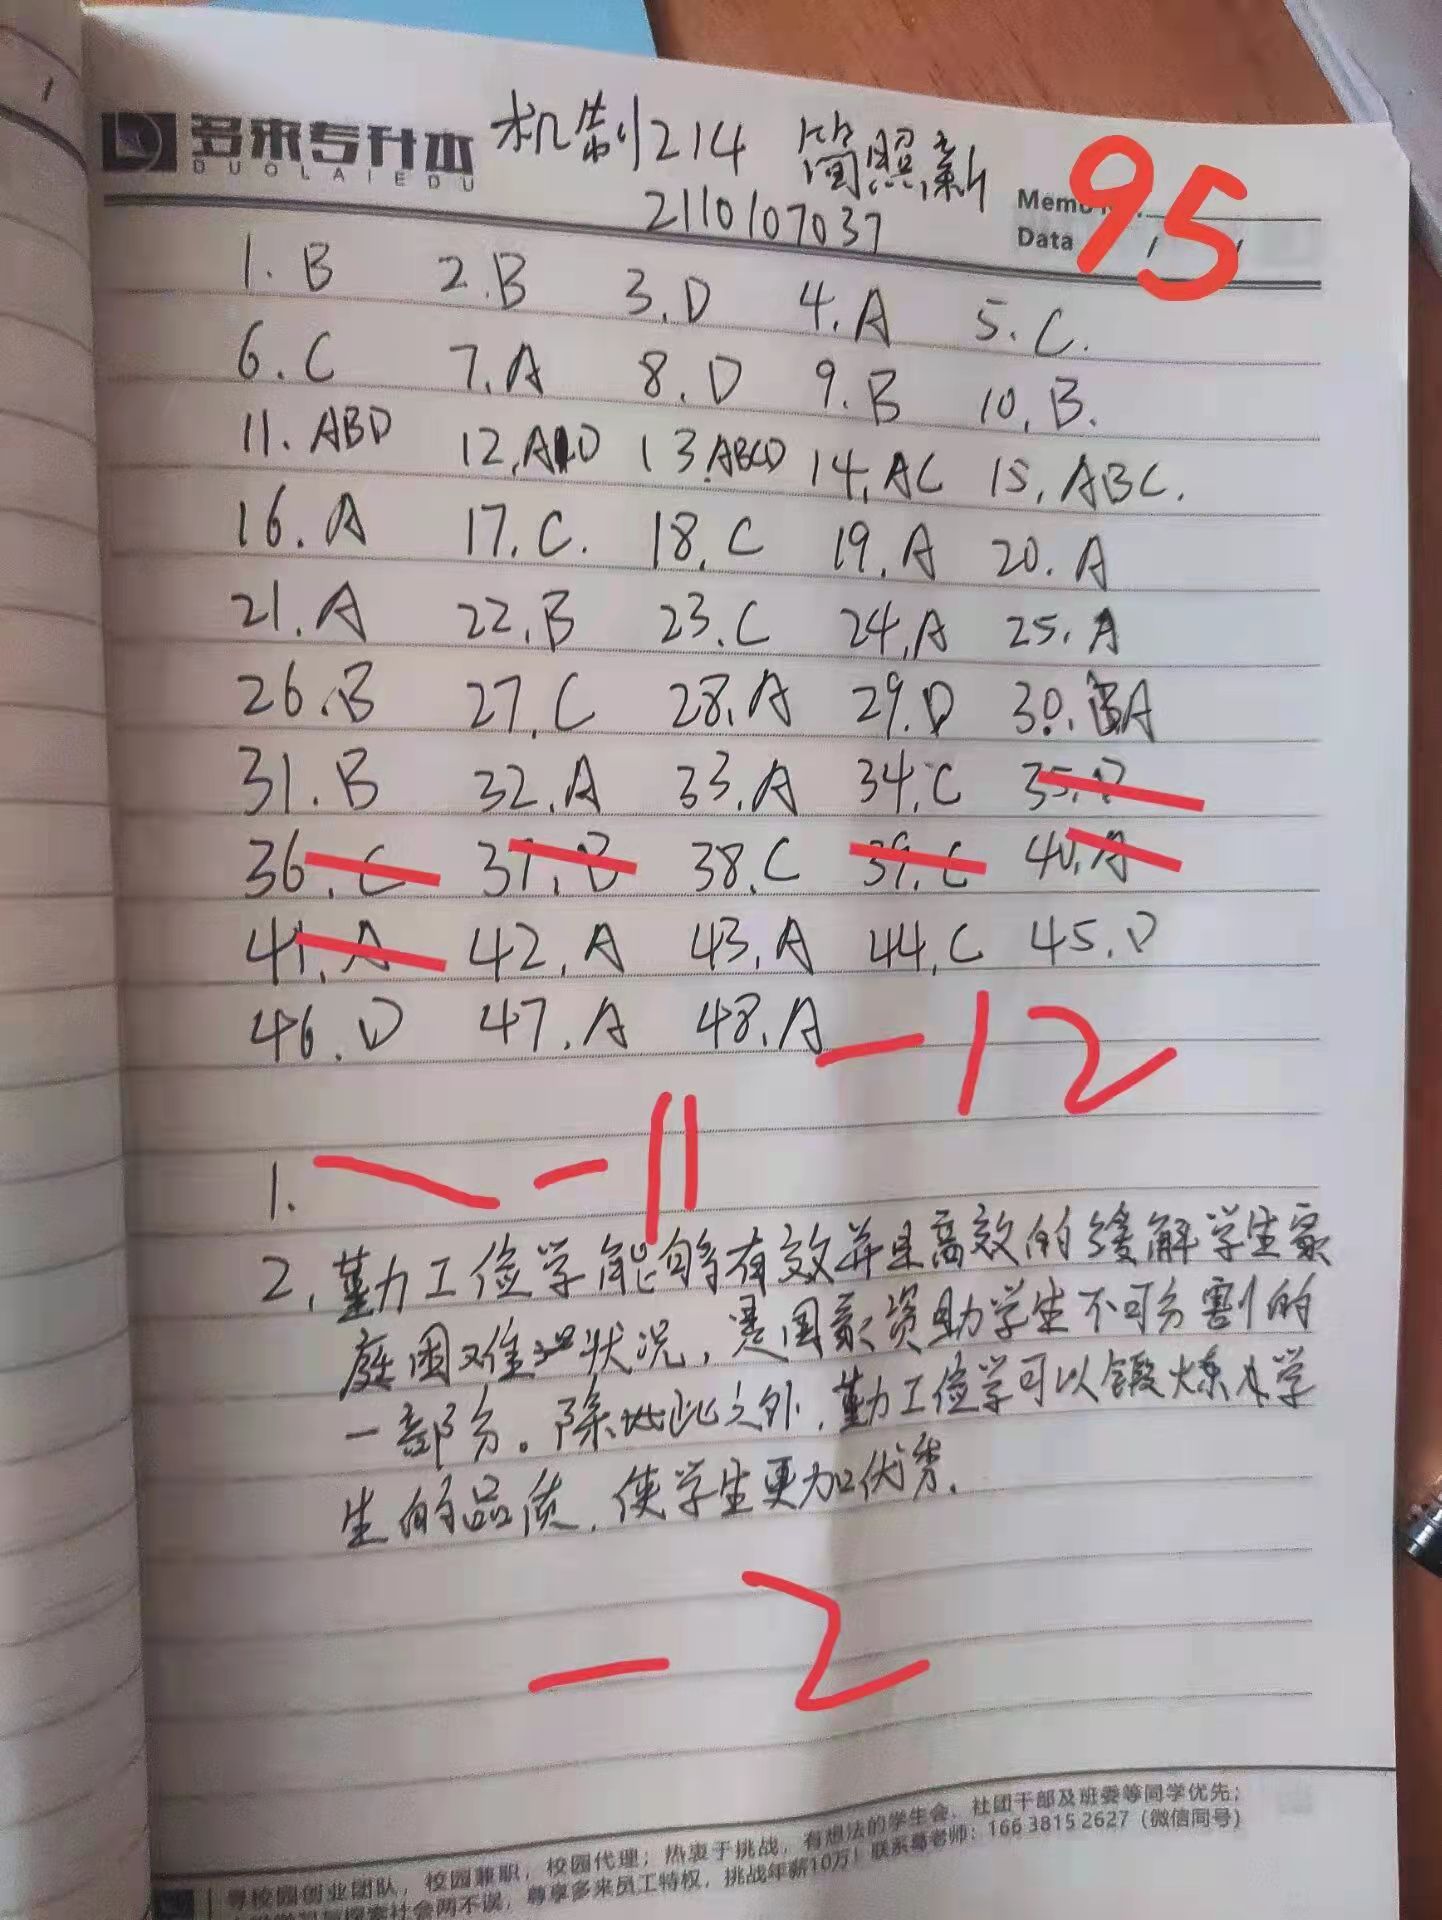 多来专升本 机制214 简照新
DUOLAIEDU 2110107037
Data 95
1. B 2. B 3. D 4. A 5. C.
6. C 7. A 8. D 9. B 10. B.
11. ABD 12. 13. ABCD 14. AC 15. ABC.
16. A 17. C. 18. C 19. A 20. A
21. A 22. B 23. C 24. A 25. A
26. B 27. C 28. A 29. D 30. BA
31. B 32. A 33. A 34. C 35. D
36. C 37. B 38. C 39. C 40. A
41. A 42. A 43. A 44. C 45. D
46. D 47. A 48. A -12
1. -11
2. 勤工俭学能够有效并且高效的缓解学生家
庭困难状况，是国家资助学生不可分割的
一部分。除此之外，勤工俭学可以锻炼学
生的品质，使学生更加优秀.
-2
寻校园创业团队，校园兼职，校园代理；热衷于挑战，有想法的学生会、社团干部及班委等同学优先；
学习与探索社会两不误，尊享多来员工特权，挑战年薪10万！联系葛老师：166 3815 2627（微信同号）